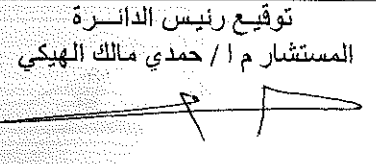 توقيع رئيس الدائـــرة
المستشار م ا / حمدي مالك الهيكي